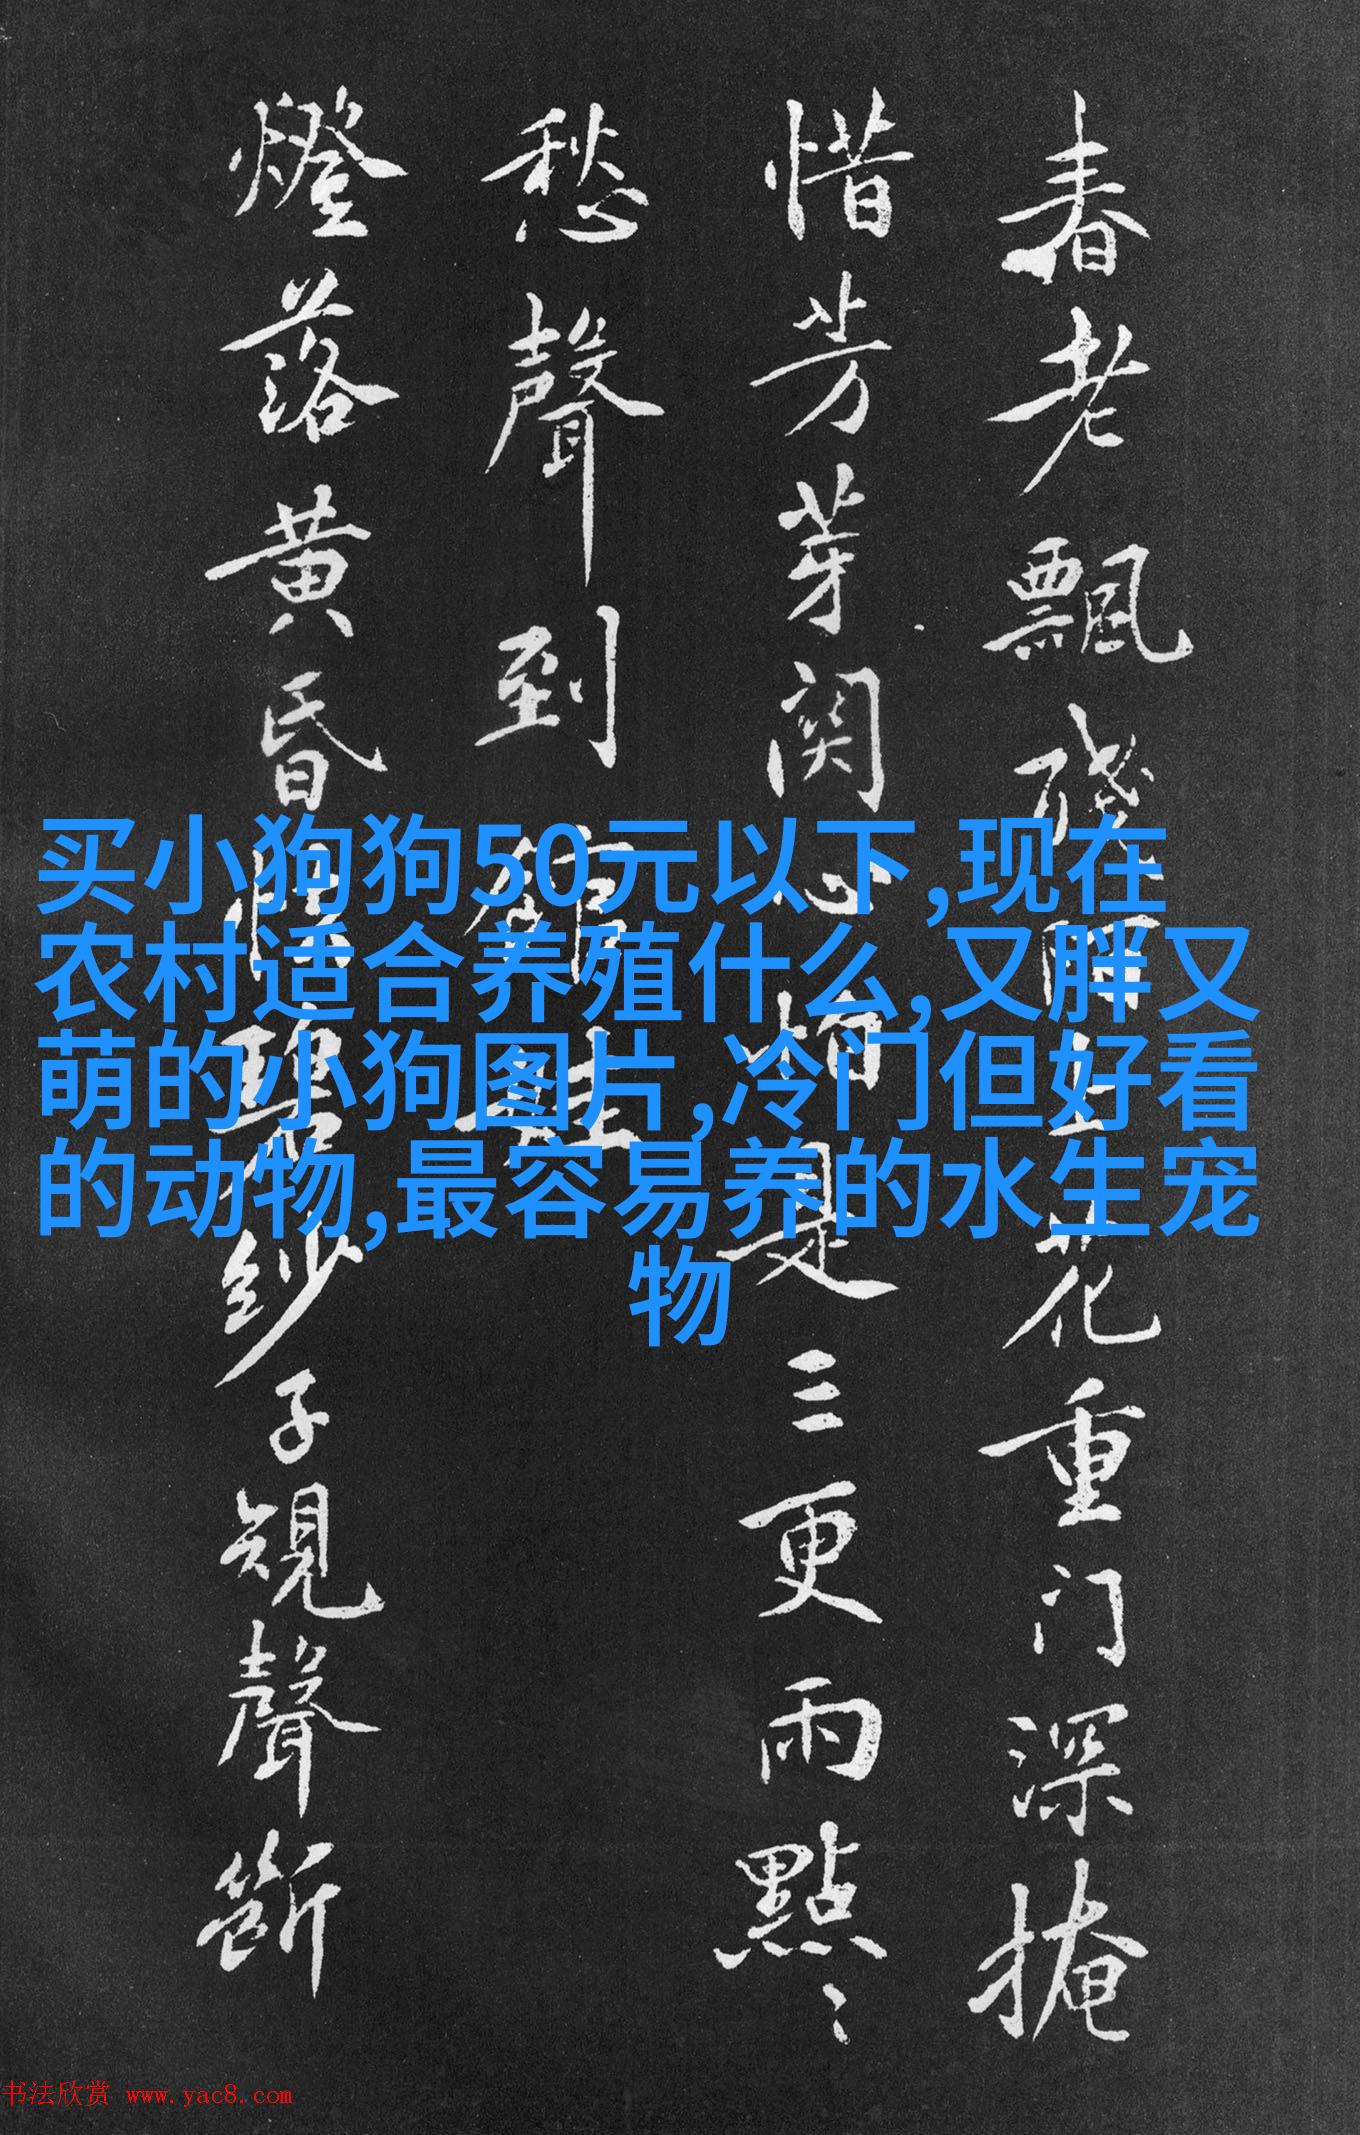 春老飄殘上花重门深掩
惜芳芽関心是三更雨點〻
愁聲到館娃
燈落黄昏碧紗子規聲斷
买小狗狗50元以下,现在
农村适合养殖什么,又胖又
萌的小狗图片,冷门但好看
的动物,最容易养的水生宠
物
书法欣赏 www.yac8.com